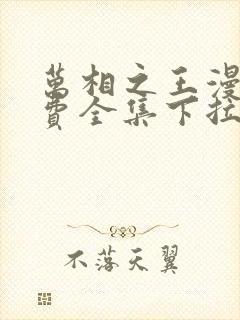 萬相之王漫
費全集下拉
不落天翼